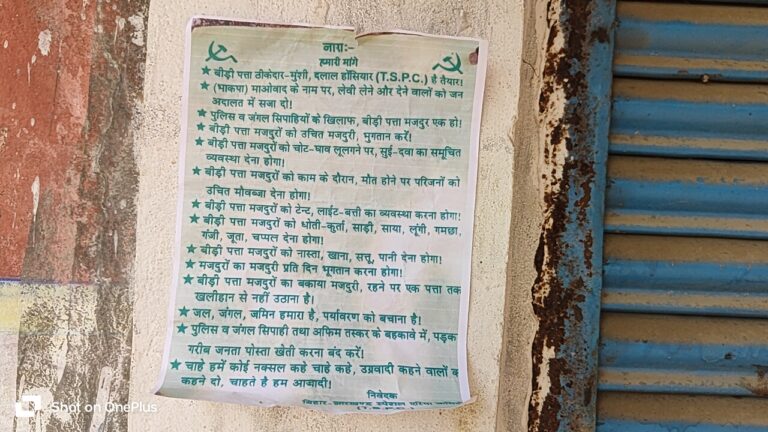 नाराः-
हमारी मांगे
★ बीड़ी पत्ता ठीकेदार-मुंशी, दलाल होंसियार (T.S.P.C.) है तैयार!
★ (भाकपा) माओवाद के नाम पर, लेवी लेने और देने वालों को जन
अदालत में सजा दो!
★ पुलिस व जंगल सिपाहियों के खिलाफ, बीड़ी पत्ता मजदुर एक हो!
★ बीड़ी पत्ता मजदुरों को उचित मजदुरी, भुगतान करें!
★ बीड़ी पत्ता मजदुरों को चोट-घाव लूलगने पर, सुई-दवा का समूचित
व्यवस्था देना होगा!
★ बीड़ी पत्ता मजदुरों को काम के दौरान, मौत होने पर परिजनों को
उचित मौवब्जा देना होगा!
★ बीड़ी पत्ता मजदुरों को टेन्ट, लाईट-बत्ती का व्यवस्था करना होगा!
★ बीड़ी पत्ता मजदुरों को धोती-कुर्ता, साड़ी, साया, लूंगी, गमछा,
गंजी, जूता, चप्पल देना होगा!
★ बीड़ी पत्ता मजदुरों को नास्ता, खाना, सत्तू, पानी देना होगा!
★ मजदुरों का मजदुरी प्रति दिन भूगतान करना होगा!
★ बीड़ी पत्ता मजदुरों का बकाया मजदुरी, रहने पर एक पत्ता तक
खलीहान से नहीं उठाना है।
★ जल, जंगल, जमिन हमारा है, पर्यावरण को बचाना है!
★ पुलिस व जंगल सिपाही तथा अफिम तस्कर के बहकावे में, पड़क
गरीब जनता पोस्ता खेती करना बंद करें!
★ चाहे हमें कोई नक्सल कहे चाहे कहे, उग्रवादी कहने वालों क
कहने दो, चाहते है हम आजादी!
निवेदक
बिहार-झारखण्ड स्पेशल एरिया
(T.S.P.C.)
Shot on OnePlus